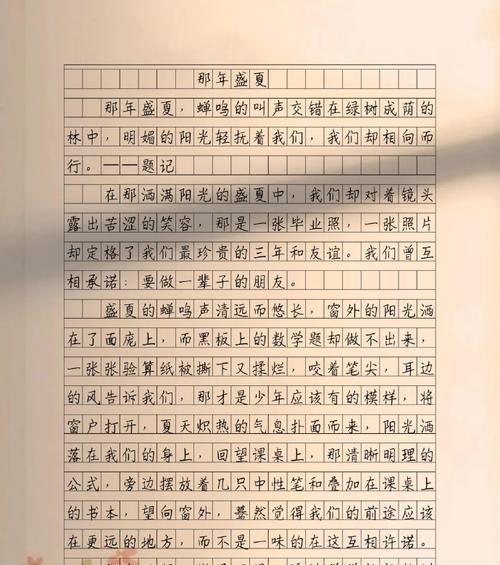 那年盛夏
那年盛夏，蝉鸣的叫声交错在绿树成荫的
林中，明媚的阳光轻抚着我们，我们却相向而
行。——题记
在那洒满阳光的盛夏中，我们却对着镜头
露出苦涩的笑容，那是一张毕业照，一张照片
却定格了我们最珍贵的三年和友谊。我们曾互
相承诺：要做一辈子的朋友。
盛夏的蝉鸣声清远而悠长，窗外的阳光洒
在了面庞上，而黑板上的数学题却做不出来，
一张张验算纸被撕下又揉烂，咬着笔尖，耳边
的风告诉我们，那才是少年应该有的模样，将
窗户打开，夏天炽热的气息扑面而来，阳光洒
落在我们的身上，回望课桌上，那清晰明理的
公式，旁边摆放着几只中性笔和叠加在课桌上
的书本，望向窗外，蓦然觉得我们的前途应该
在更远的地方，而不是一味的在这互相许诺。